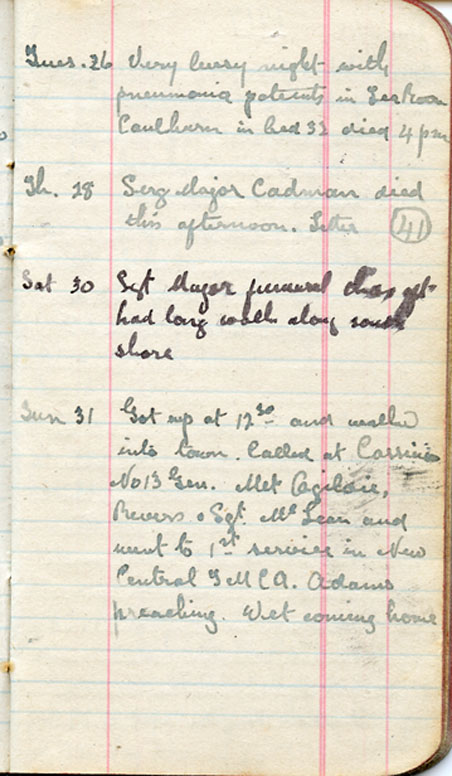 Tues. 26 Very busy night with
pneumonia patients in
in bed 32 died 4 pm
Th. 28 Serg Major Cadman died
this afternoon. Letter 41
Sat 30 Sgt Major funeral
had long walk along south
shore
Sun 31 Got up at 12 30 and walked
into town. Called at Cassinis
No 13 Gen. Met Ogilvie,
Rivers & Sgt. McLean and
went to 1st service in New
Central YMCA. Adams
preaching. Wet coming home